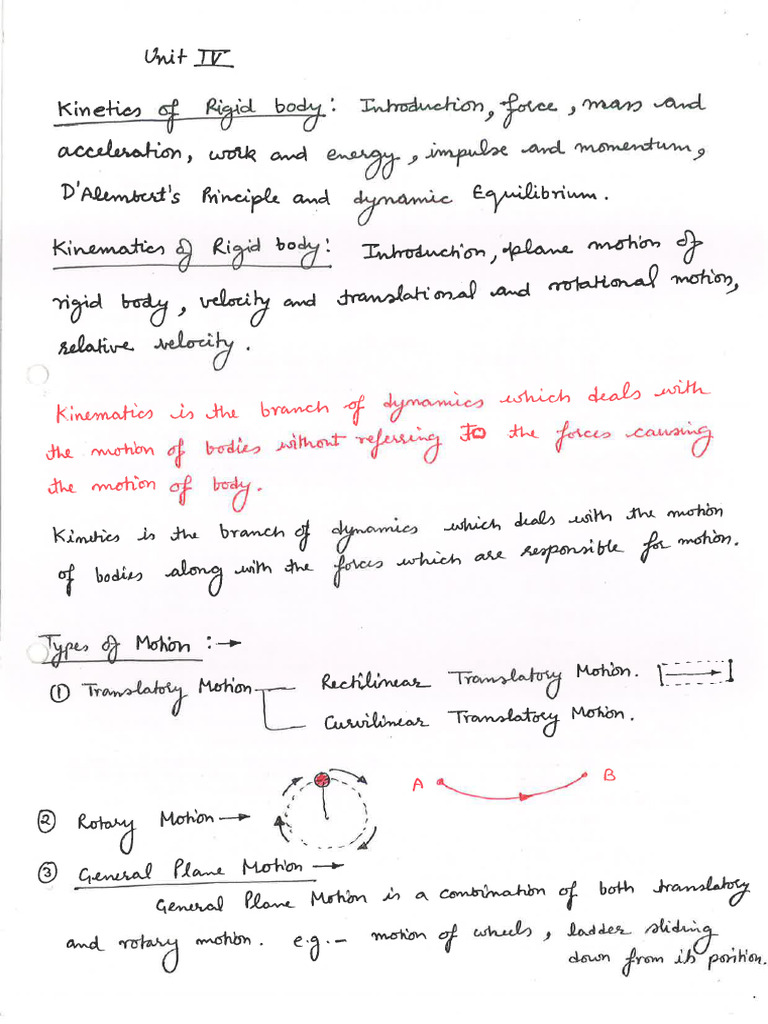 Unit IV
Kinetics of Rigid body: Introduction, force, mass and
acceleration, work and energy, impulse and momentum,
D'Alembert's Principle and dynamic Equilibrium.
Kinematics of Rigid body: Introduction, plane motion of
rigid body, velocity and translational and rotational motion,
relative velocity.
Kinematics is the branch of dynamics which deals with
the motion of bodies without referring to the forces causing
the motion of body.
Kinetics is the branch of dynamics which deals with the motion
of bodies along with the forces which are responsible for motion.
Types of Motion :→
① Translatory Motion Rectilinear Translatory Motion.
Curvilinear Translatory Motion.
A B
② Rotary Motion →
③ General Plane Motion →
General Plane Motion is a combination of both translatory
and rotary motion. e.g.- motion of wheels, ladder sliding
down from its position.